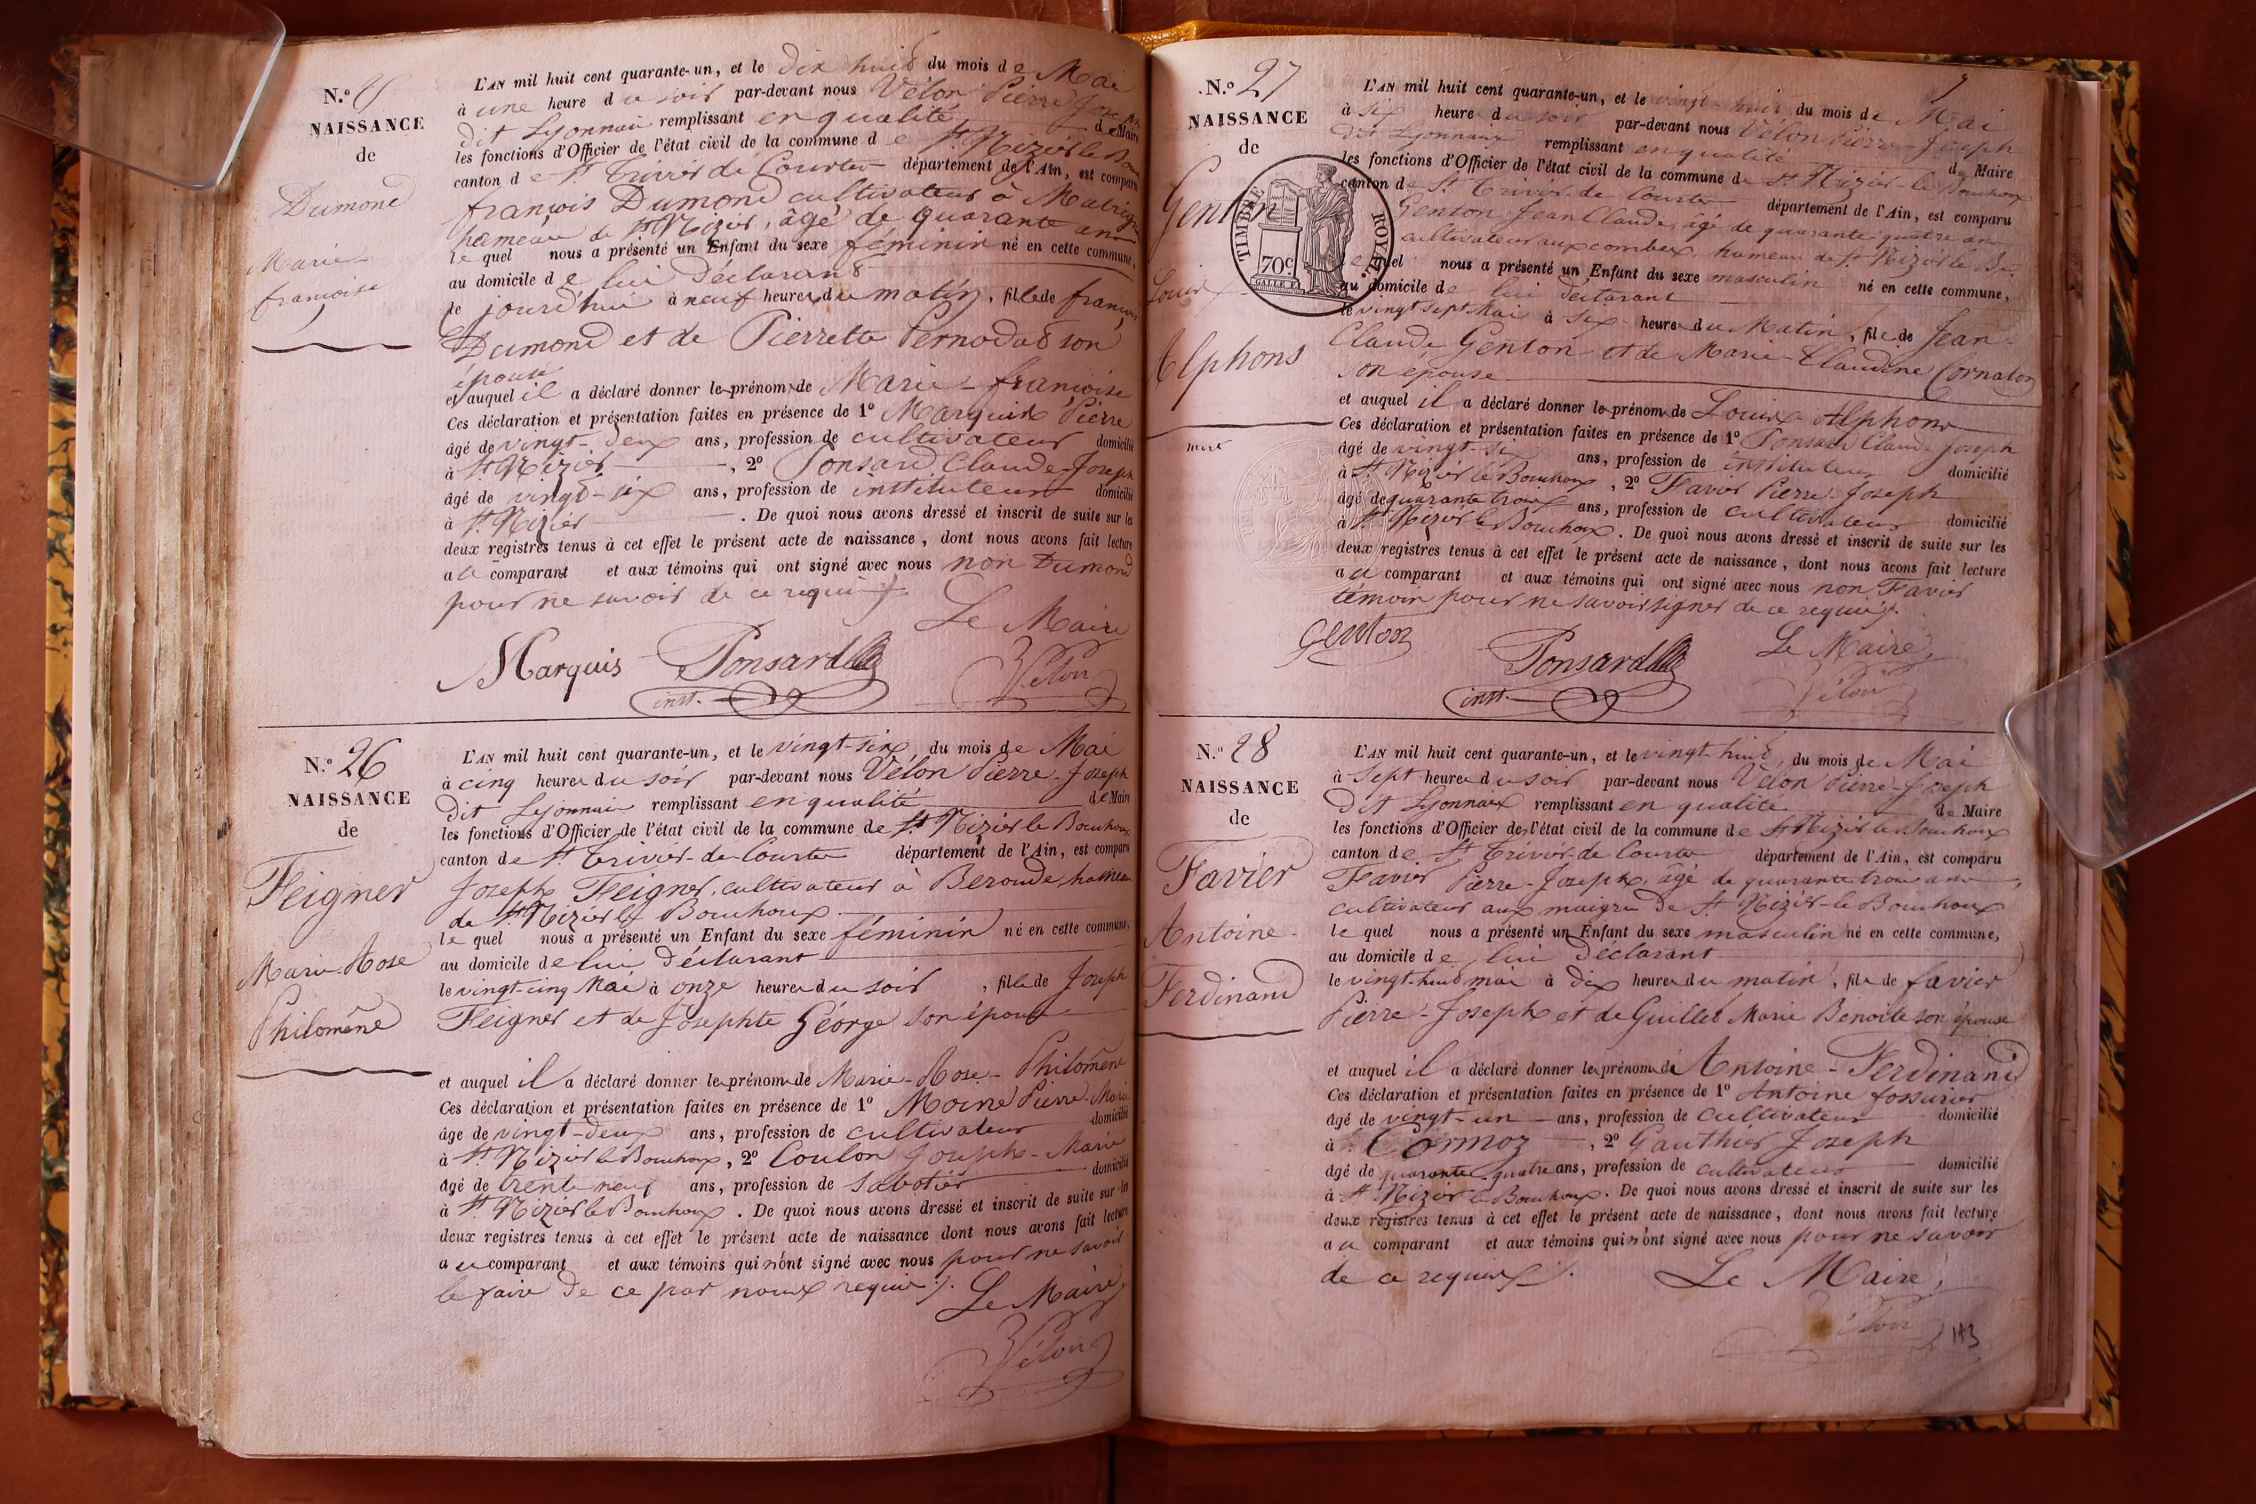 N.º
NAISSANCE
de
Dumond
Marie
françoise
L'AN mil huit cent quarante-un, et le dix huit du mois de Mai
à une heure du soir par-devant nous Vélon Pierre Joseph
dit Lyonnais remplissant en qualité de Maire
les fonctions d'Officier de l'état civil de la commune de St. Nizier le Bouchoux
canton de St. Trivier de Courtes département de l'Ain, est comparu
françois Dumond cultivateur à
hameau de St. Nizier, âgé de quarante ans
le quel nous a présenté un Enfant du sexe féminin né en cette commune,
au domicile de lui déclarant
le jourd'hui à neuf heures du matin, fille de françois
Dumond et de Pierrette Pernodat son
épouse
et auquel il a déclaré donner les prénoms de Marie-françoise
Ces déclaration et présentation faites en présence de 1º Marquis Pierre
âgé de vingt-deux ans, profession de cultivateur domicilié
à St. Nizier, 2º Ponsard Claude-Joseph
âgé de vingt-six ans, profession de instituteur domicilié
à St. Nizier. De quoi nous avons dressé et inscrit de suite sur les
deux registres tenus à cet effet le présent acte de naissance, dont nous avons fait lecture
au comparant et aux témoins qui ont signé avec nous non Dumond
pour ne savoir de ce requis.
Le Maire
Marquis Ponsard Vélon
inst.
N.º 26
NAISSANCE
de
Feigner
Marie Rose
Philomène
L'AN mil huit cent quarante-un, et le vingt-six, du mois de Mai
à cinq heures du soir par-devant nous Vélon Pierre-Joseph
dit Lyonnais remplissant en qualité de Maire
les fonctions d'Officier de l'état civil de la commune de St. Nizier le Bouchoux
canton de St. Trivier-de-Courtes département de l'Ain, est comparu
Joseph Feigner, cultivateur à Beroude, hameau
de St. Nizier le Bouchoux
le quel nous a présenté un Enfant du sexe féminin né en cette commune,
au domicile de lui déclarant
le vingt-cinq Mai à onze heures du soir, fille de Joseph
Feigner et de Josephte George son épouse
et auquel il a déclaré donner les prénoms de Marie-Rose-Philomène
Ces déclaration et présentation faites en présence de 1º Moine Pierre-Marie
âge de vingt-deux ans, profession de cultivateur domicilié
à St. Nizier le Bouchoux, 2º Coulon Joseph-Marie
âgé de trente neuf ans, profession de sabotier domicilié
à St. Nizier le Bouchoux. De quoi nous avons dressé et inscrit de suite sur les
deux registres tenus à cet effet le présent acte de naissance dont nous avons fait lecture
au comparant et aux témoins qui n'ont signé avec nous pour ne savoir
le faire de ce par nous requis.
Le Maire,
Vélon
N.º 27
NAISSANCE
de
Genton
Louis
Alphons
TIMBRE ROYAL
70c
L'AN mil huit cent quarante-un, et le vingt-huit du mois de Mai
à six heure du soir par-devant nous Vélon Pierre-Joseph
dit Lyonnais remplissant en qualité de Maire
les fonctions d'Officier de l'état civil de la commune de St. Nizier-le-Bouchoux
canton de St. Trivier-de-Courtes département de l'Ain, est comparu
Genton Jean Claude, âgé de quarante quatre ans
cultivateur aux combes, hameau de St. Nizier le Bx.
le quel nous a présenté un Enfant du sexe masculin né en cette commune,
au domicile de lui déclarant
le vingt sept Mai à six heures du Matin, fils de Jean
Claude Genton et de Marie-Claudine Cornaton
son épouse
et auquel il a déclaré donner les prénoms de Louis Alphons
Ces déclaration et présentation faites en présence de 1º Ponsard Claude Joseph
âgé de vingt-six ans, profession de instituteur domicilié
à St. Nizier le Bouchoux, 2º Favier Pierre-Joseph
âgé de quarante trois ans, profession de cultivateur domicilié
à St. Nizier le Bouchoux. De quoi nous avons dressé et inscrit de suite sur les
deux registres tenus à cet effet le présent acte de naissance, dont nous avons fait lecture
au comparant et aux témoins qui ont signé avec nous non Favier
témoin pour ne savoir signer de ce requis.
Genton Ponsard Le Maire,
inst. Vélon
N.º 28
NAISSANCE
de
Favier
Antoine-
Ferdinand
L'AN mil huit cent quarante-un, et le vingt-huit, du mois de Mai
à sept heures du soir par-devant nous Vélon Pierre-Joseph
dit Lyonnais remplissant en qualité de Maire
les fonctions d'Officier de l'état civil de la commune de St. Nizier le Bouchoux
canton de St. Trivier-de-Courtes département de l'Ain, est comparu
Favier Pierre-Joseph, âgé de quarante trois ans,
cultivateur aux maigre de St. Nizier-le-Bouchoux
le quel nous a présenté un Enfant du sexe masculin né en cette commune,
au domicile de lui déclarant
le vingt-huit mai à dix heures du matin, fils de favier
Pierre-Joseph et de Guillet Marie Benoite son épouse
et auquel il a déclaré donner les prénoms de Antoine-Ferdinand
Ces déclaration et présentation faites en présence de 1º Antoine
âgé de vingt-un ans, profession de cultivateur domicilié
à Cormoz, 2º Gauthier Joseph
âgé de quarante quatre ans, profession de cultivateur domicilié
à St. Nizier le Bouchoux. De quoi nous avons dressé et inscrit de suite sur les
deux registres tenus à cet effet le présent acte de naissance, dont nous avons fait lecture
au comparant et aux témoins qui n'ont signé avec nous pour ne savoir
de ce requis.
Le Maire,
Vélon
113